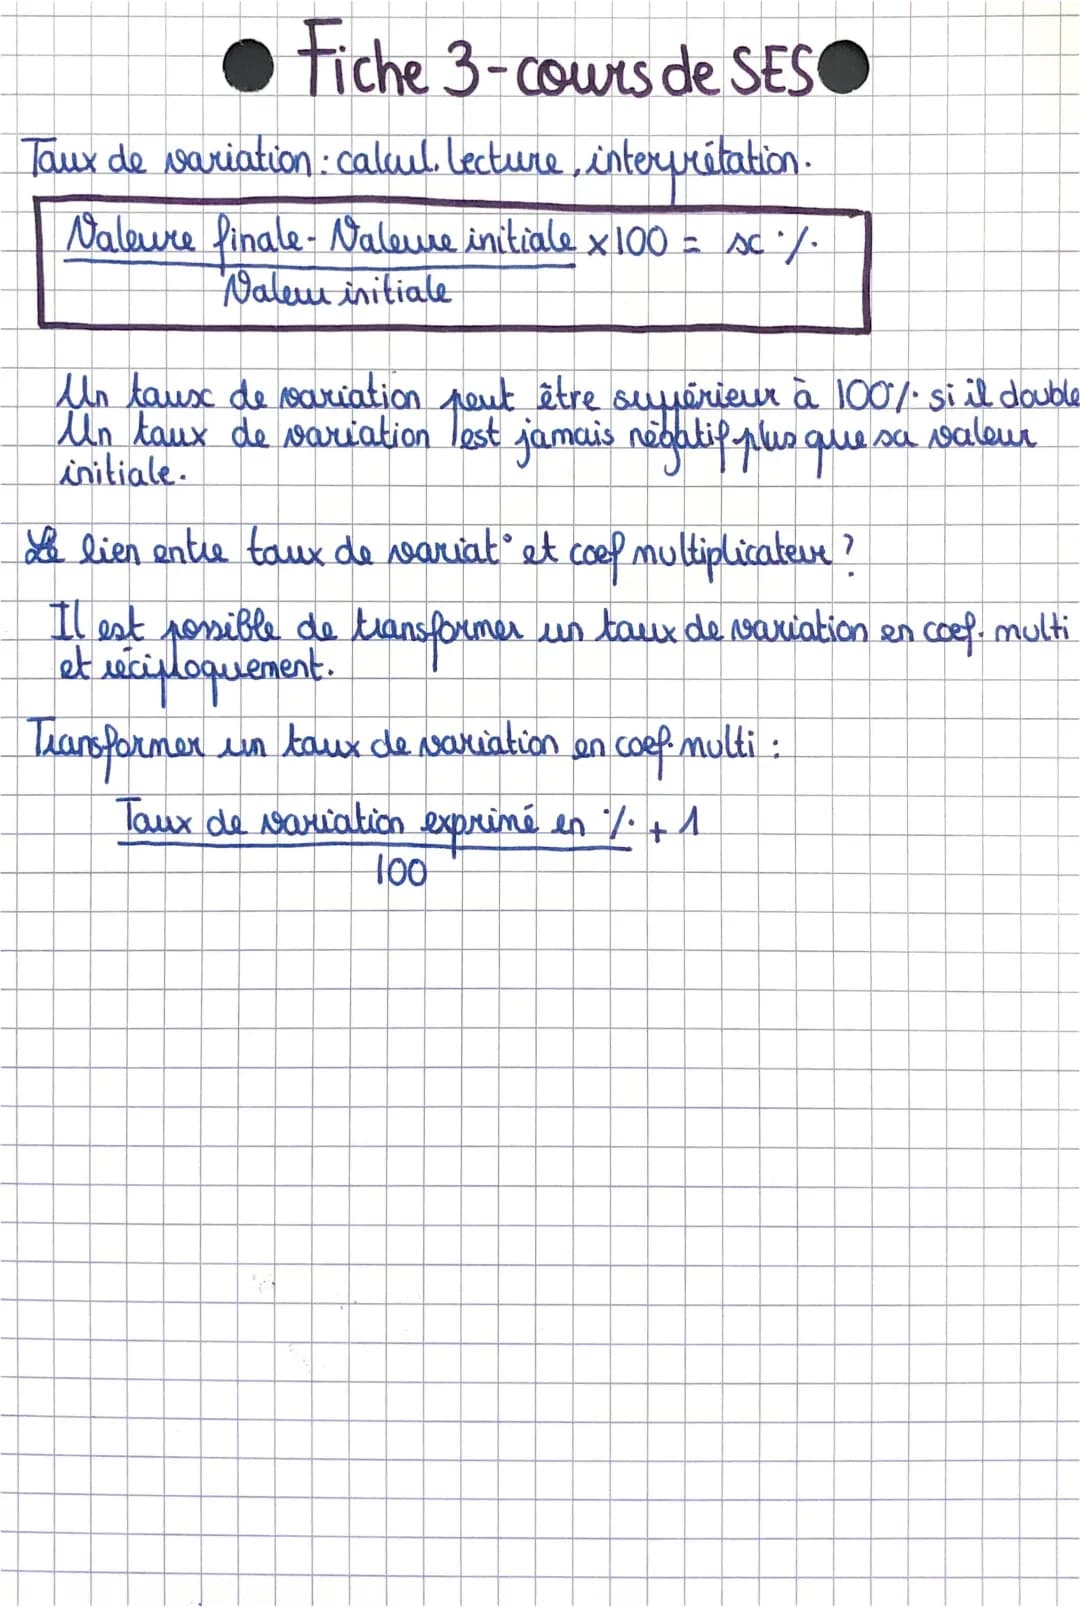 Fiche 3-cours de SES
Taux de variation : calcul, lecture, interprétation.
Valeure finale - Valeure initiale x100 = x %
Valeur initiale
Un taux de variation peut être supérieur à 100% si il double
Un taux de variation est jamais négatif plus que sa valeur
initiale.
Le lien entre taux de variat° et coef multiplicateur ?
Il est possible de transformer un taux de variation en coef. multi
et réciploquement.
Transformer un taux de variation en coef. multi :
Taux de variation exprimé en % + 1
100